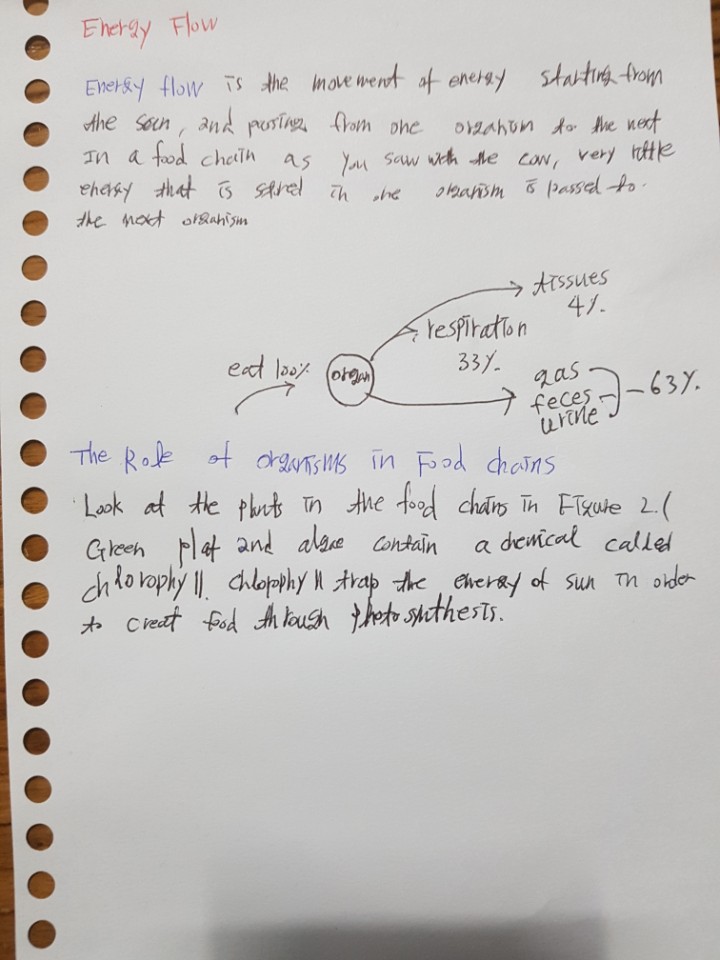 Energy Flow
Energy flow is the movement of energy starting from
the sun, and passing from one organism to the next
In a food chain as you saw with the cow, very little
energy that is stored in one organism is passed to.
the next organism
tissues
4%.
respiration
33%.
eat 100%
organ
gas
feces
urine
63%.
The Role of organisms in Food chains
Look at the plants in the food chains in Figure 2.(
Green plat and algae contain a chemical called
chlorophyll. chlopophyll trap the energy of sun in order
to creat food through photosynthesis.